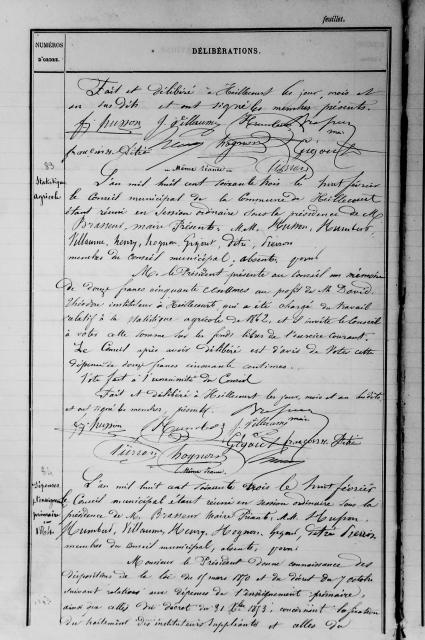 feuillet.
NUMÉROS
D'ORDRE.
DÉLIBÉRATIONS.
Fait et délibéré à Heillecourt les jour, mois et
an sus dits et ont signé les membres présents.
fj husson J. Villaume Humbert
maire
françois Détré hoqnon Grigout
Pierson
83
Statistique
agricole
Même séance
L'an mil huit cent soixante trois le huit février
le Conseil municipal de la Commune de Heillecourt
étant réuni en Session ordinaire sous la présidence de M
Brasseur, maire Présents, M.M. Husson, Humbert,
Villaume, henry, hognon, Grigout, Détré, Pierson
membres du conseil municipal, absents,
Mr le Président présente au Conseil un mémoire
de douze francs cinquante centimes au profit de Mr David
instituteur à Heillecourt, qui a été chargé du travail
relatif à la statistique agricole de 1862, et il invite le Conseil
à voter cette somme sur les fonds libres de l'exercice courant.
Le Conseil après avoir délibéré est d'avis de voter cette
dépense de douze francs cinquante centimes.
Vote fait à l'unanimité du Conseil
Fait et délibéré à Heillecourt les jour, mois et an susdits
et ont signé les membres présents.
fj husson Humbert J. Villaume
Grigout françois Détré
Pierson hoqnon
84
Dépenses
primaire
Même séance
L'an mil huit cent soixante trois le huit février
le Conseil municipal étant réuni en session ordinaire sous la
présidence de M. Brasseur Maire Présents, M.M. Husson,
Humbert, Villaume, Henry, Hognon, Grigout, Détré Pierson
membres du conseil municipal, absents,
Monsieur le Président donne connaissance des
dispositions de la loi du 15 mars 1850 et du décret du 7 octobre
suivant relatives aux dépenses de l'enseignement primaire,
ainsi que celles du décret du 31 Xbre 1853, concernant la fixation
du traitement des instituteurs suppléants et celles du